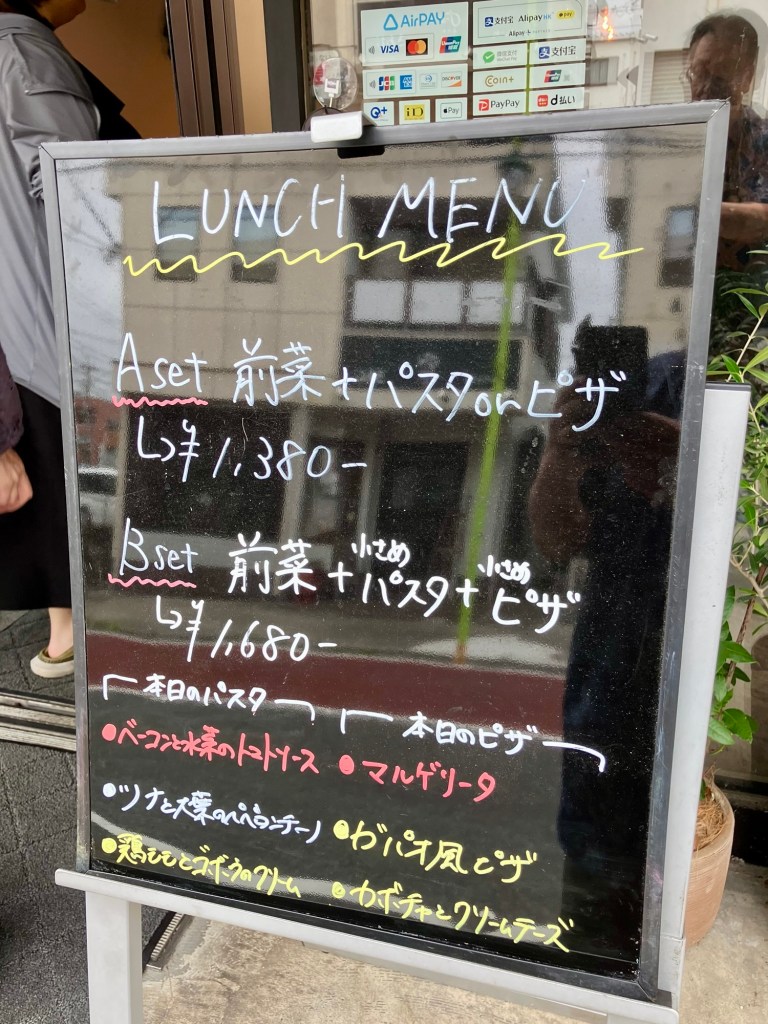 AirPAY
支付宝 Alipay HK
Alipay+
VISA
支付宝
JCB
DISCOVER
COIN+
iD
Pay
PayPay
d払い
LUNCH MENU
A set 前菜+パスタorピザ
↳¥1,380-
B set 前菜+小さめパスタ+小さめピザ
↳¥1,680-
本日のパスタ
・ベーコンと水菜のトマトソース
・ツナと大葉のペペロンチーノ
・鶏ももとゴボウのクリーム
本日のピザ
・マルゲリータ
・ガパオ風ピザ
・カボチャとクリームチーズ